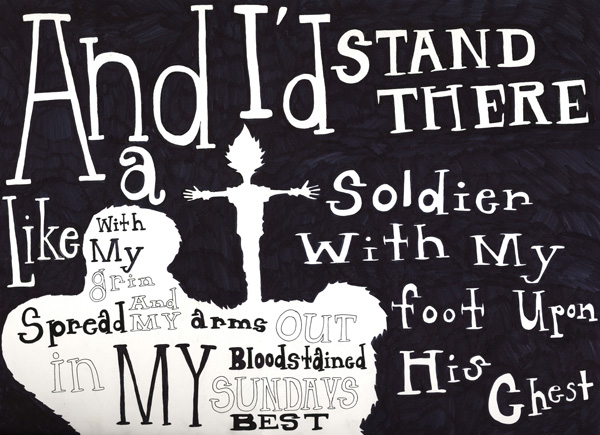 And I'd STAND
THERE
Like a Soldier
With My
foot Upon
His Chest
With
My
grin
And
Spread MY arms OUT
in MY Bloodstained
SUNDAYS
BEST